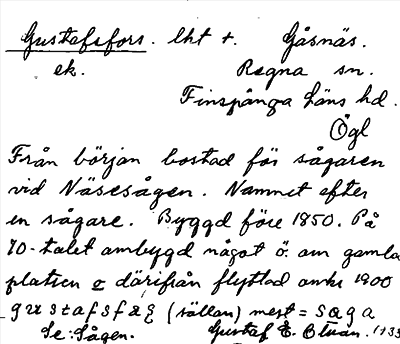 Gustafsfors. lht t. Gåsnäs.
ek. Regna sn.
Finspånga läns hd.
Ögl
Från början bostad för sågaren
vid Näsesågen. Namnet efter
en sågare. Byggd före 1850. På
70-talet ombygd något ö. om gamla
platsen o därifrån flyttad omkr 1900
gustafsfɑʂ (sällan) mest = saga
Se: Sågen. Gustaf E. 1933